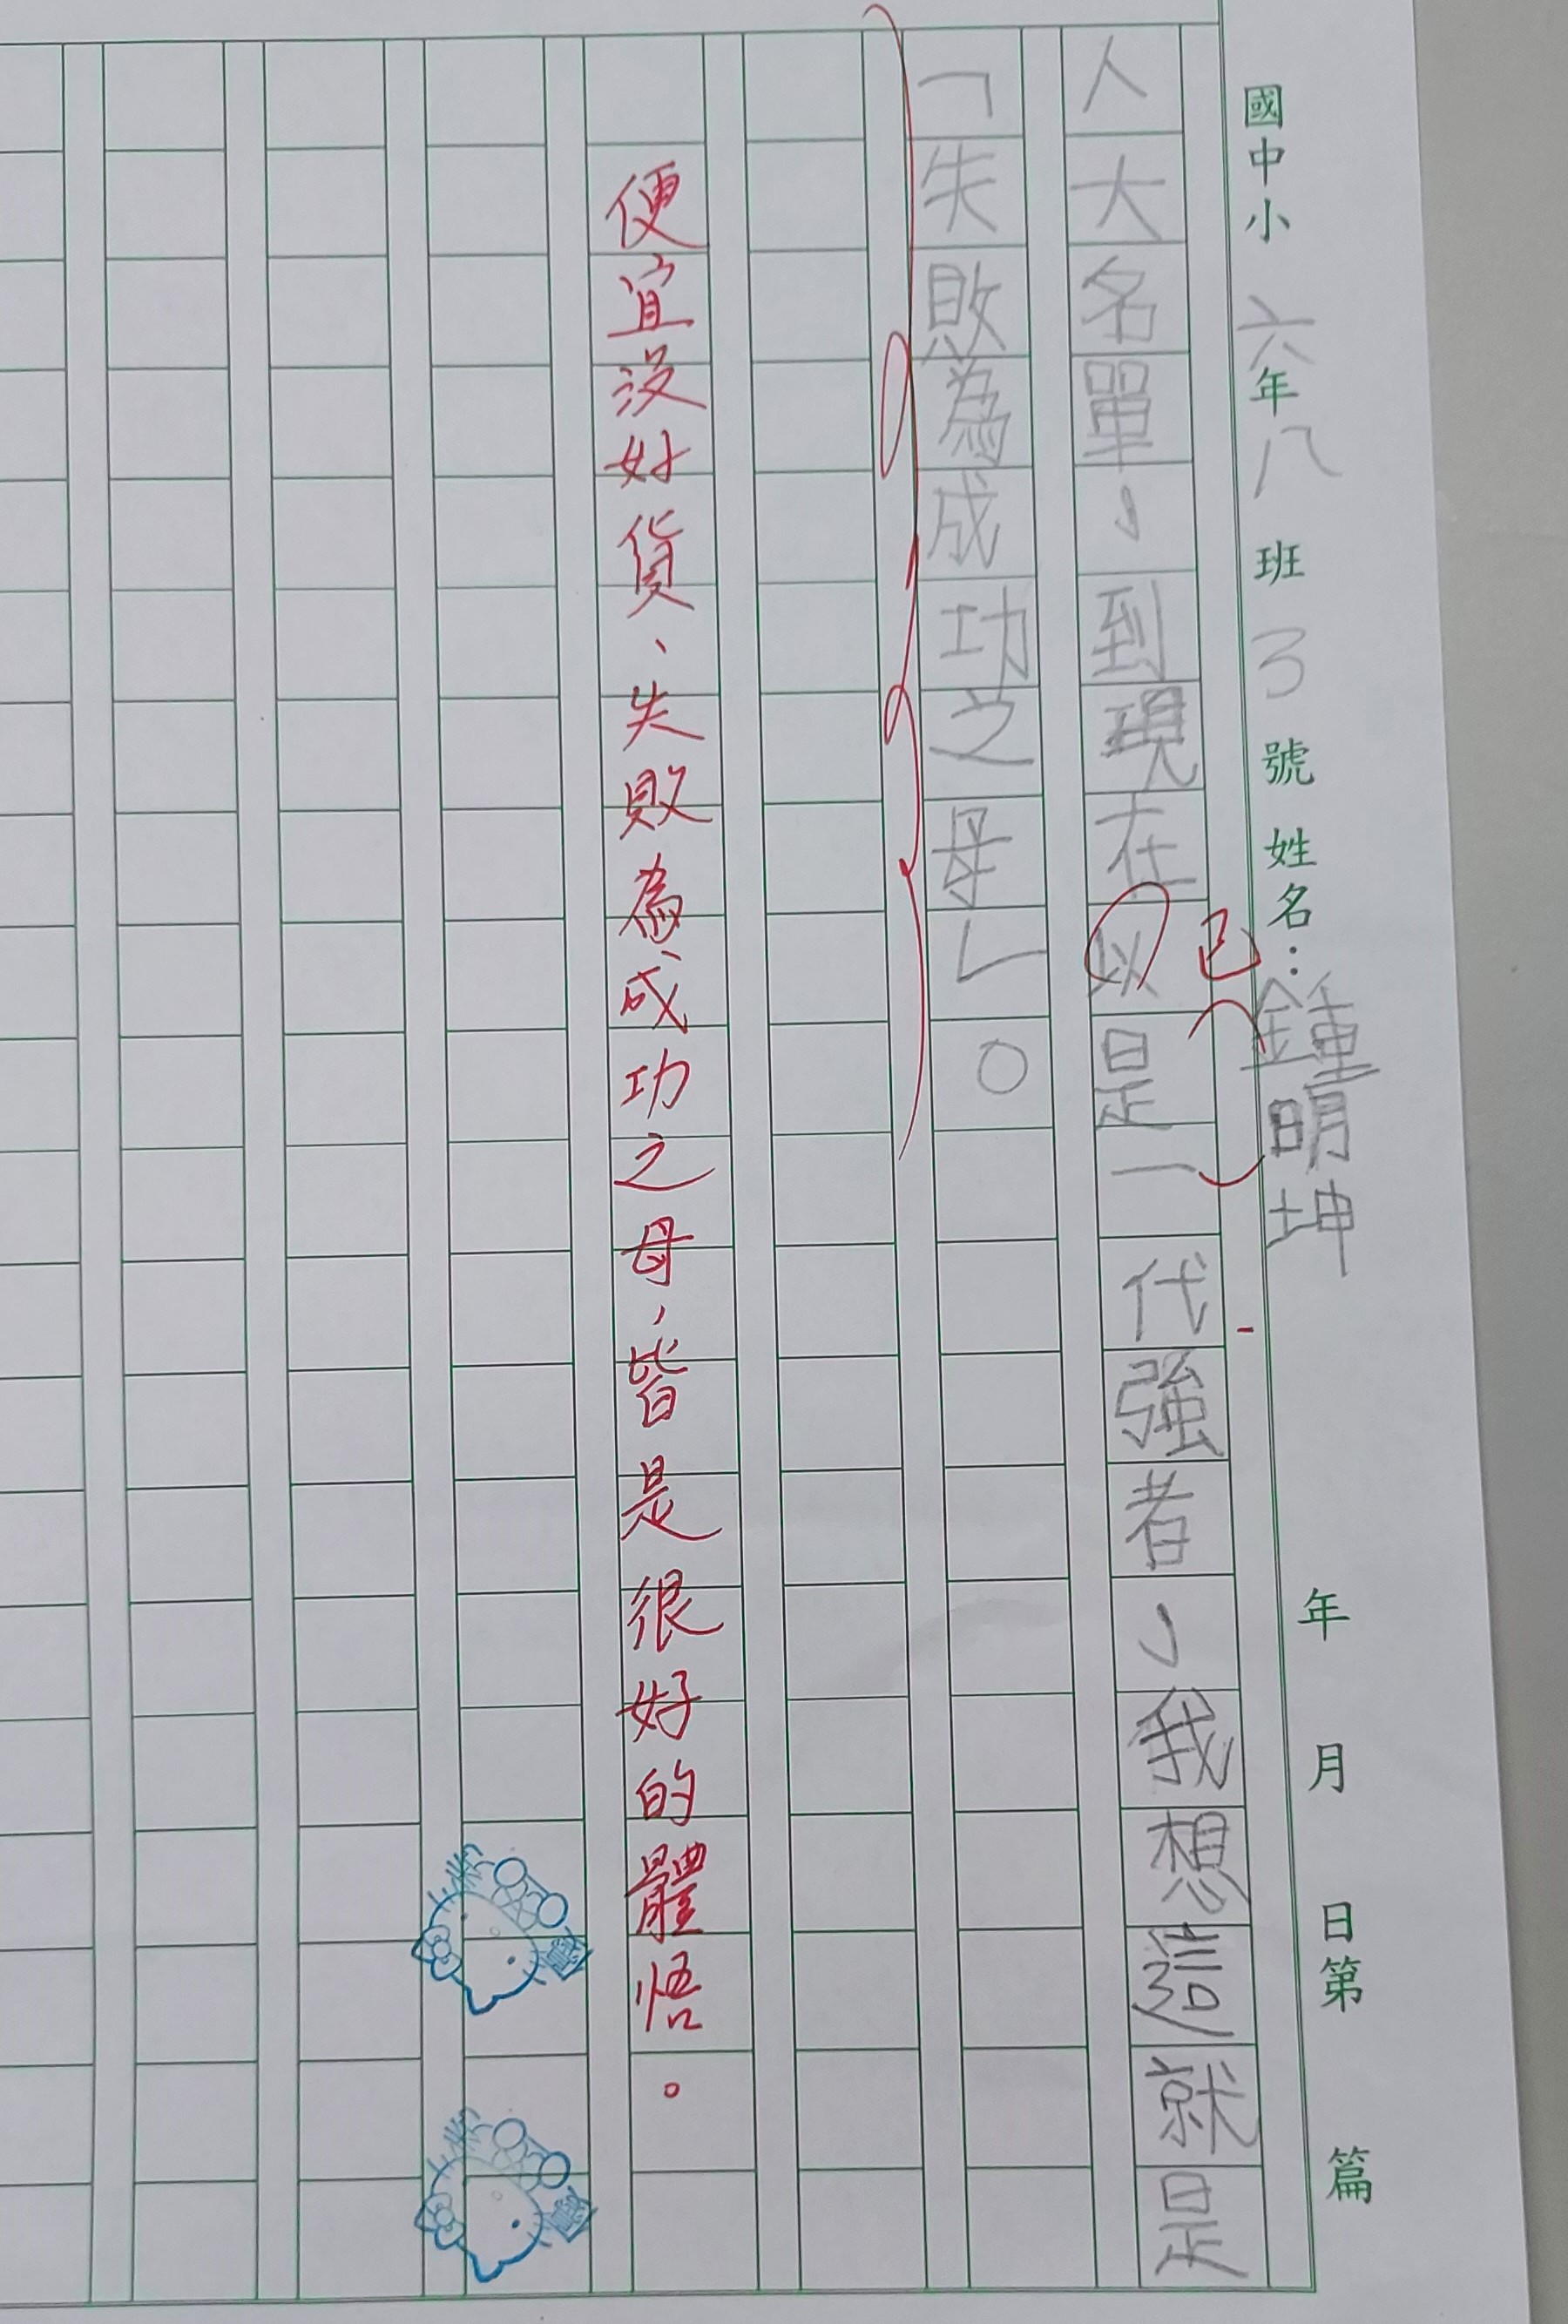 國中小 六年八班 3號 姓名：鍾明坤 年 月 日第 篇
人大名單，到現在以是一代強者，我想這就是
已
「失敗為成功之母」。
便宜沒好貨、失敗為成功之母，皆是很好的體悟。